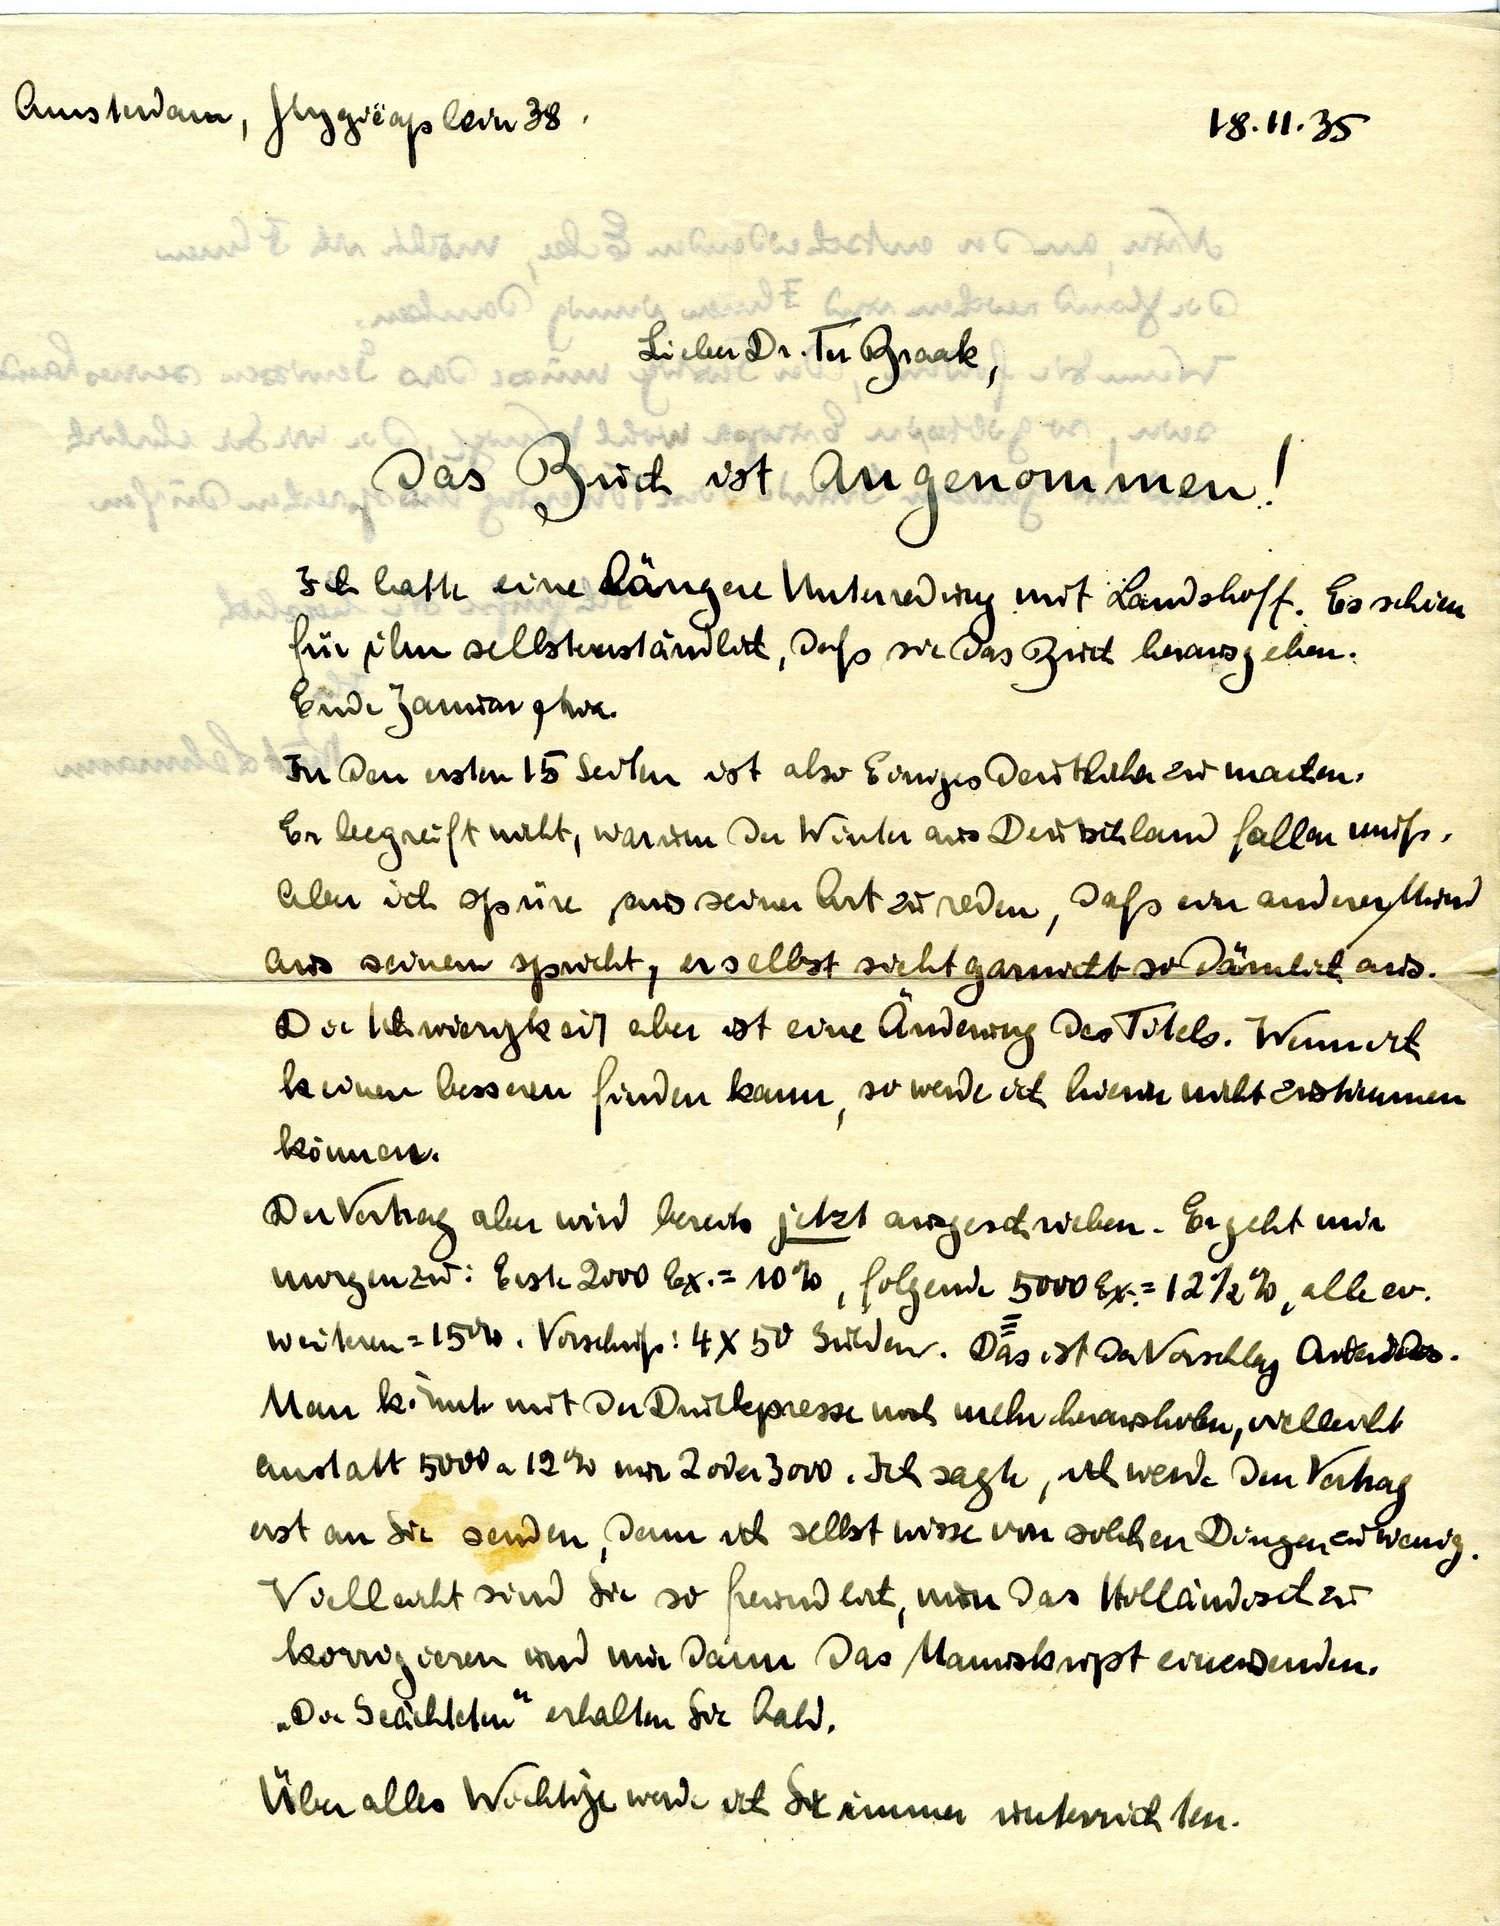 Amsterdam, Hygiëaplein 38.
18.11.35
Lieber Dr. Ter Braak,
Das Buch ist angenommen!
Ich hatte eine längere Unterredung mit Landshoff. Es schien
für ihn selbstverständlich, dass sie das Buch herausgeben.
Ende Januar etwa.
In den ersten 15 Seiten ist also Einiges deutlicher zu machen.
Er begreift nicht, warum der Winter aus Deutschland fallen muss.
Aber ich spüre aus seiner Art zu reden, dass ein anderer Mund
aus seinem spricht, er selbst sieht garnicht so dämlich aus.
Die Schwierigkeit aber ist eine Änderung des Titels. Wenn ich
keinen besseren finden kann, so werde ich hierin nicht zustimmen
können.
Der Vertrag aber wird bereits jetzt ausgeschrieben. Er geht mir
morgen zu: Erste 2000 Ex. = 10%, folgende 5000 Ex. = 12½%, alle ev.
weiteren = 15%. Vorschuss: 4 X 50 Gulden. Das ist der Vorschlag
Man könnte mit der Druckpresse noch mehr herausholen, vielleicht
anstatt 5000 a 12% nur 2 oder 3000. Ich sagte, ich werde den Vertrag
erst an Sie senden, denn ich selbst wisse von solchen Dingen zu wenig.
Vielleicht sind Sie so freundlich, nun das Holländisch zu
korrigieren und mir dann das Manuskript einzusenden.
„Die Geächteten" erhalten Sie bald.
Über alles Wichtige werde ich Sie immer unterrichten.